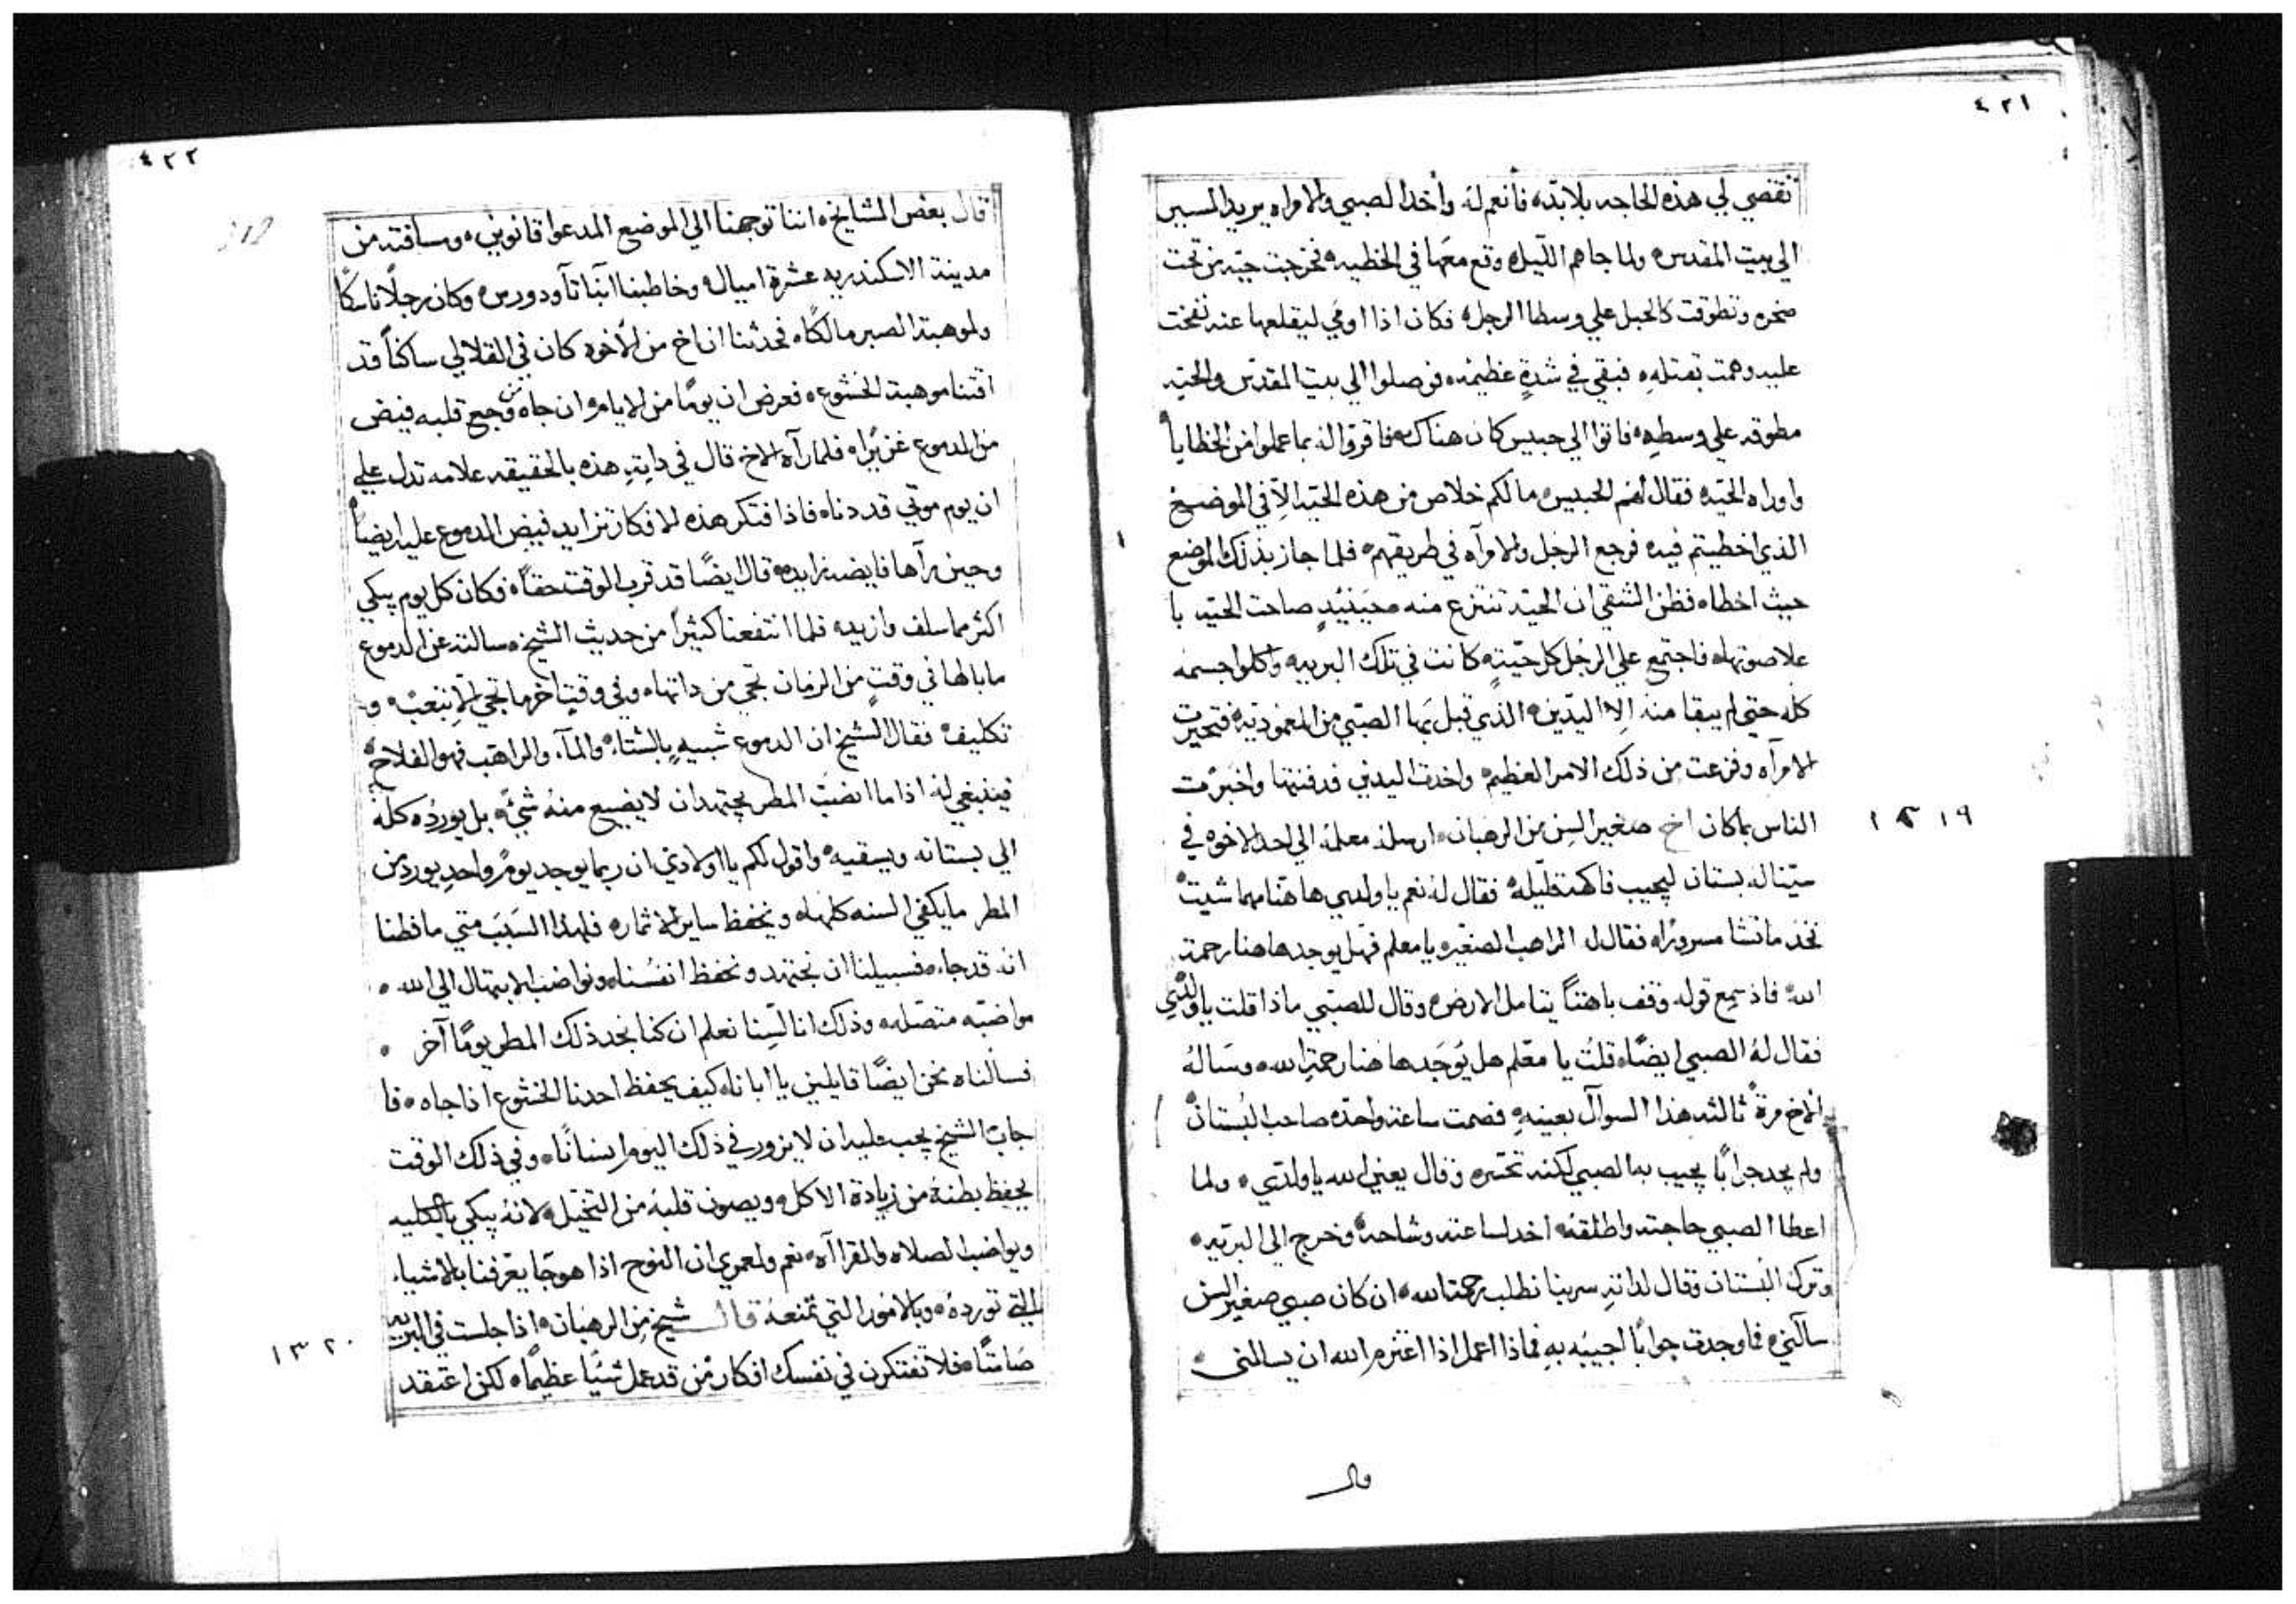 ٤٢١
تقضي لي هذه الحاجه بلابدّه فأنعم له وأخذ الصبي والامراه يريد المسير
الي بيت المقدس ولما جاهم الليل وقع معها في الخطيه فخرجت حيّه من تحت
صخره وتطوقت كالحبل علي وسط الرجل فكان اذا اومي ليقلعها عنه نفخت
عليه وهمت بقتله فبقي في شدةٍ عظيمه فوصلوا الي بيت المقدس والحيه
مطوقه علي وسطه فاتوا الي حبيس كان هناك فاقروا له بما عملوا من الخطايا
واوراه الحيّه فقال لهم الحبيس ما لكم خلاص من هذه الحيّه الاّ في الموضع
الذي اخطيتم فيه فرجع الرجل والامرآه في طريقهم فلما جاز بذلك الموضع
حيث اخطاه فظن الشقي ان الحيّه تنتزع منه محينيدٍ صاحت الحيّه با
علا صوتها فاجتمع علي الرجل كل حيّتٍه كانت في تلك البريه وأكلوا جسمه
كله حتي لم يبقا منه إلا اليدّين الذي قبل بها الصبّي من المعموديه فتحيرت
الامرآه وفزعت من ذلك الامر العظيم واخدت اليدين فدفنتها واخبرت
الناس بما كان اخ صغير السِن من الرهبان ارسله معلمه الي احد الاخوه في
١٢١٩
سيّنا له بستان ليجيب فاكهة قليله فقال له نعم يا ولدي هاهنا مهما شيت
نخذ ما تشا مسرورًا فقال له الراهب الصغير يا معلم فهل يوجد هاهنا رحمة
الله فاذ سمع قوله وقف باهتاً يتامل الارض وقال للصبّي ماذا قلت يا ولدّي
فقال لهُ الصبي ايضًا قلتُ يا معّلم هل يُوَجَد هاهنا رحمةِ الله وسَالهُ
الاخ مرةً ثالثه هذا السوآل بعينهِ فصمت ساعة واحدّه صاحب البُستان
ولم يجد جوابًا يجيب به الصبي لكنه تحسّر وقال يعيني الله يا ولدّي ولما
اعطا الصبي حاجته واطلقه اخد لساعته وشاحهُ وخرج الي البرّيه
وترك البُستان وقال لذاتهِ سر بنا نطلب رحمة الله ان كان صبي صغير السن
سآلني فما وجدت جوابًا اجيبُه بهِ فماذا اعمل اذا اعتزم الله ان يسالني
قال
٤٢٢
قال بعض المشايخ اننا توجهنا الي الموضع المدعوا قانوني ومسافته من
مدينة الاسكندريه عشرة اميال وخاطبنا آنبا تآودورس وكان رجلاً ناسكًا
ولموهبة الصبر مالكًا فحدثنا ان اخ من الأخوه كان في القلالي ساكناً قد
اقتنا موهبة الخشوع فعرض ان يومًا من الايام ان جاه من وجع قلبه فيض
من الدموع غزيرًا فلما رآه الاخ قال في داتِهِ هذه بالحقيقه علامه تدل علي
ان يوم موتي قد دنا فاذا فتكر هذه الافكار تزايد فيض الدموع عليه ايضًا
وحين رآها فايضه زايده قال ايضًا قد قرب الوقت حقاً فكان كل يوم يبكي
اكثر مما سلف وازيد فلما انتفعنا كثيرًا من حديث الشيخ سالته عن الدموع
ما بالها في وقتٍ من الزمان تجي من داتها وفي وقتٍ اخر ما تجي الاّ بتعب و
تكليف فقال الشيخ ان الدموع شبيهٍ بالشتاء والمآء والراهب فهو الفلاح
فينبغي لهُ اذا ما انصَبّ المطر يجتهد ان لا يضيع منهُ شيءٍ بل يوردُه كله
الي بستانه ويسقيه واقول لكم يا اولادي ان ربما يوجد يومٍ واحدٍ يورد من
المطر ما يكفي السنه كلها ويحفظ ساير الاثمار فلهذا السَبَبَ متي ما فطنا
انه قد جاء فسبيلنا ان نجتهد ونحفظ انفُسنا ونواضب الابتهال الي الله
مواضبّه متصّله وذلك انا لسِنا نعلم ان كنا نجد ذلك المطر يومًا آخر
فسالناه نحن ايضًا قايلين يا ابانا كيف يحفظ احدنا الخشوع اذا جاه فا
جاب الشيخ يجب عليه ان لا يزور في ذلك اليوم انسانًا وفي ذلك الوقت
يحفظ بطنهُ من زيادة الاكل ويصون قلبهُ من التخيّل لانهُ يبكي بالكليه
ويواضب الصلاه والقراآه نعم ولعمري ان النوح اذا هو جَا يعّرفنا بالاشياء
التي توردهُ وبالامُور التي تمنعهُ قال شيخ من الرهبان اذا جلست في البريه
١٣٢٠
صَامتًا فلا تفتكرن في نفسك افكار من قد عمل شيًا عظيمًا لكن اعتقد